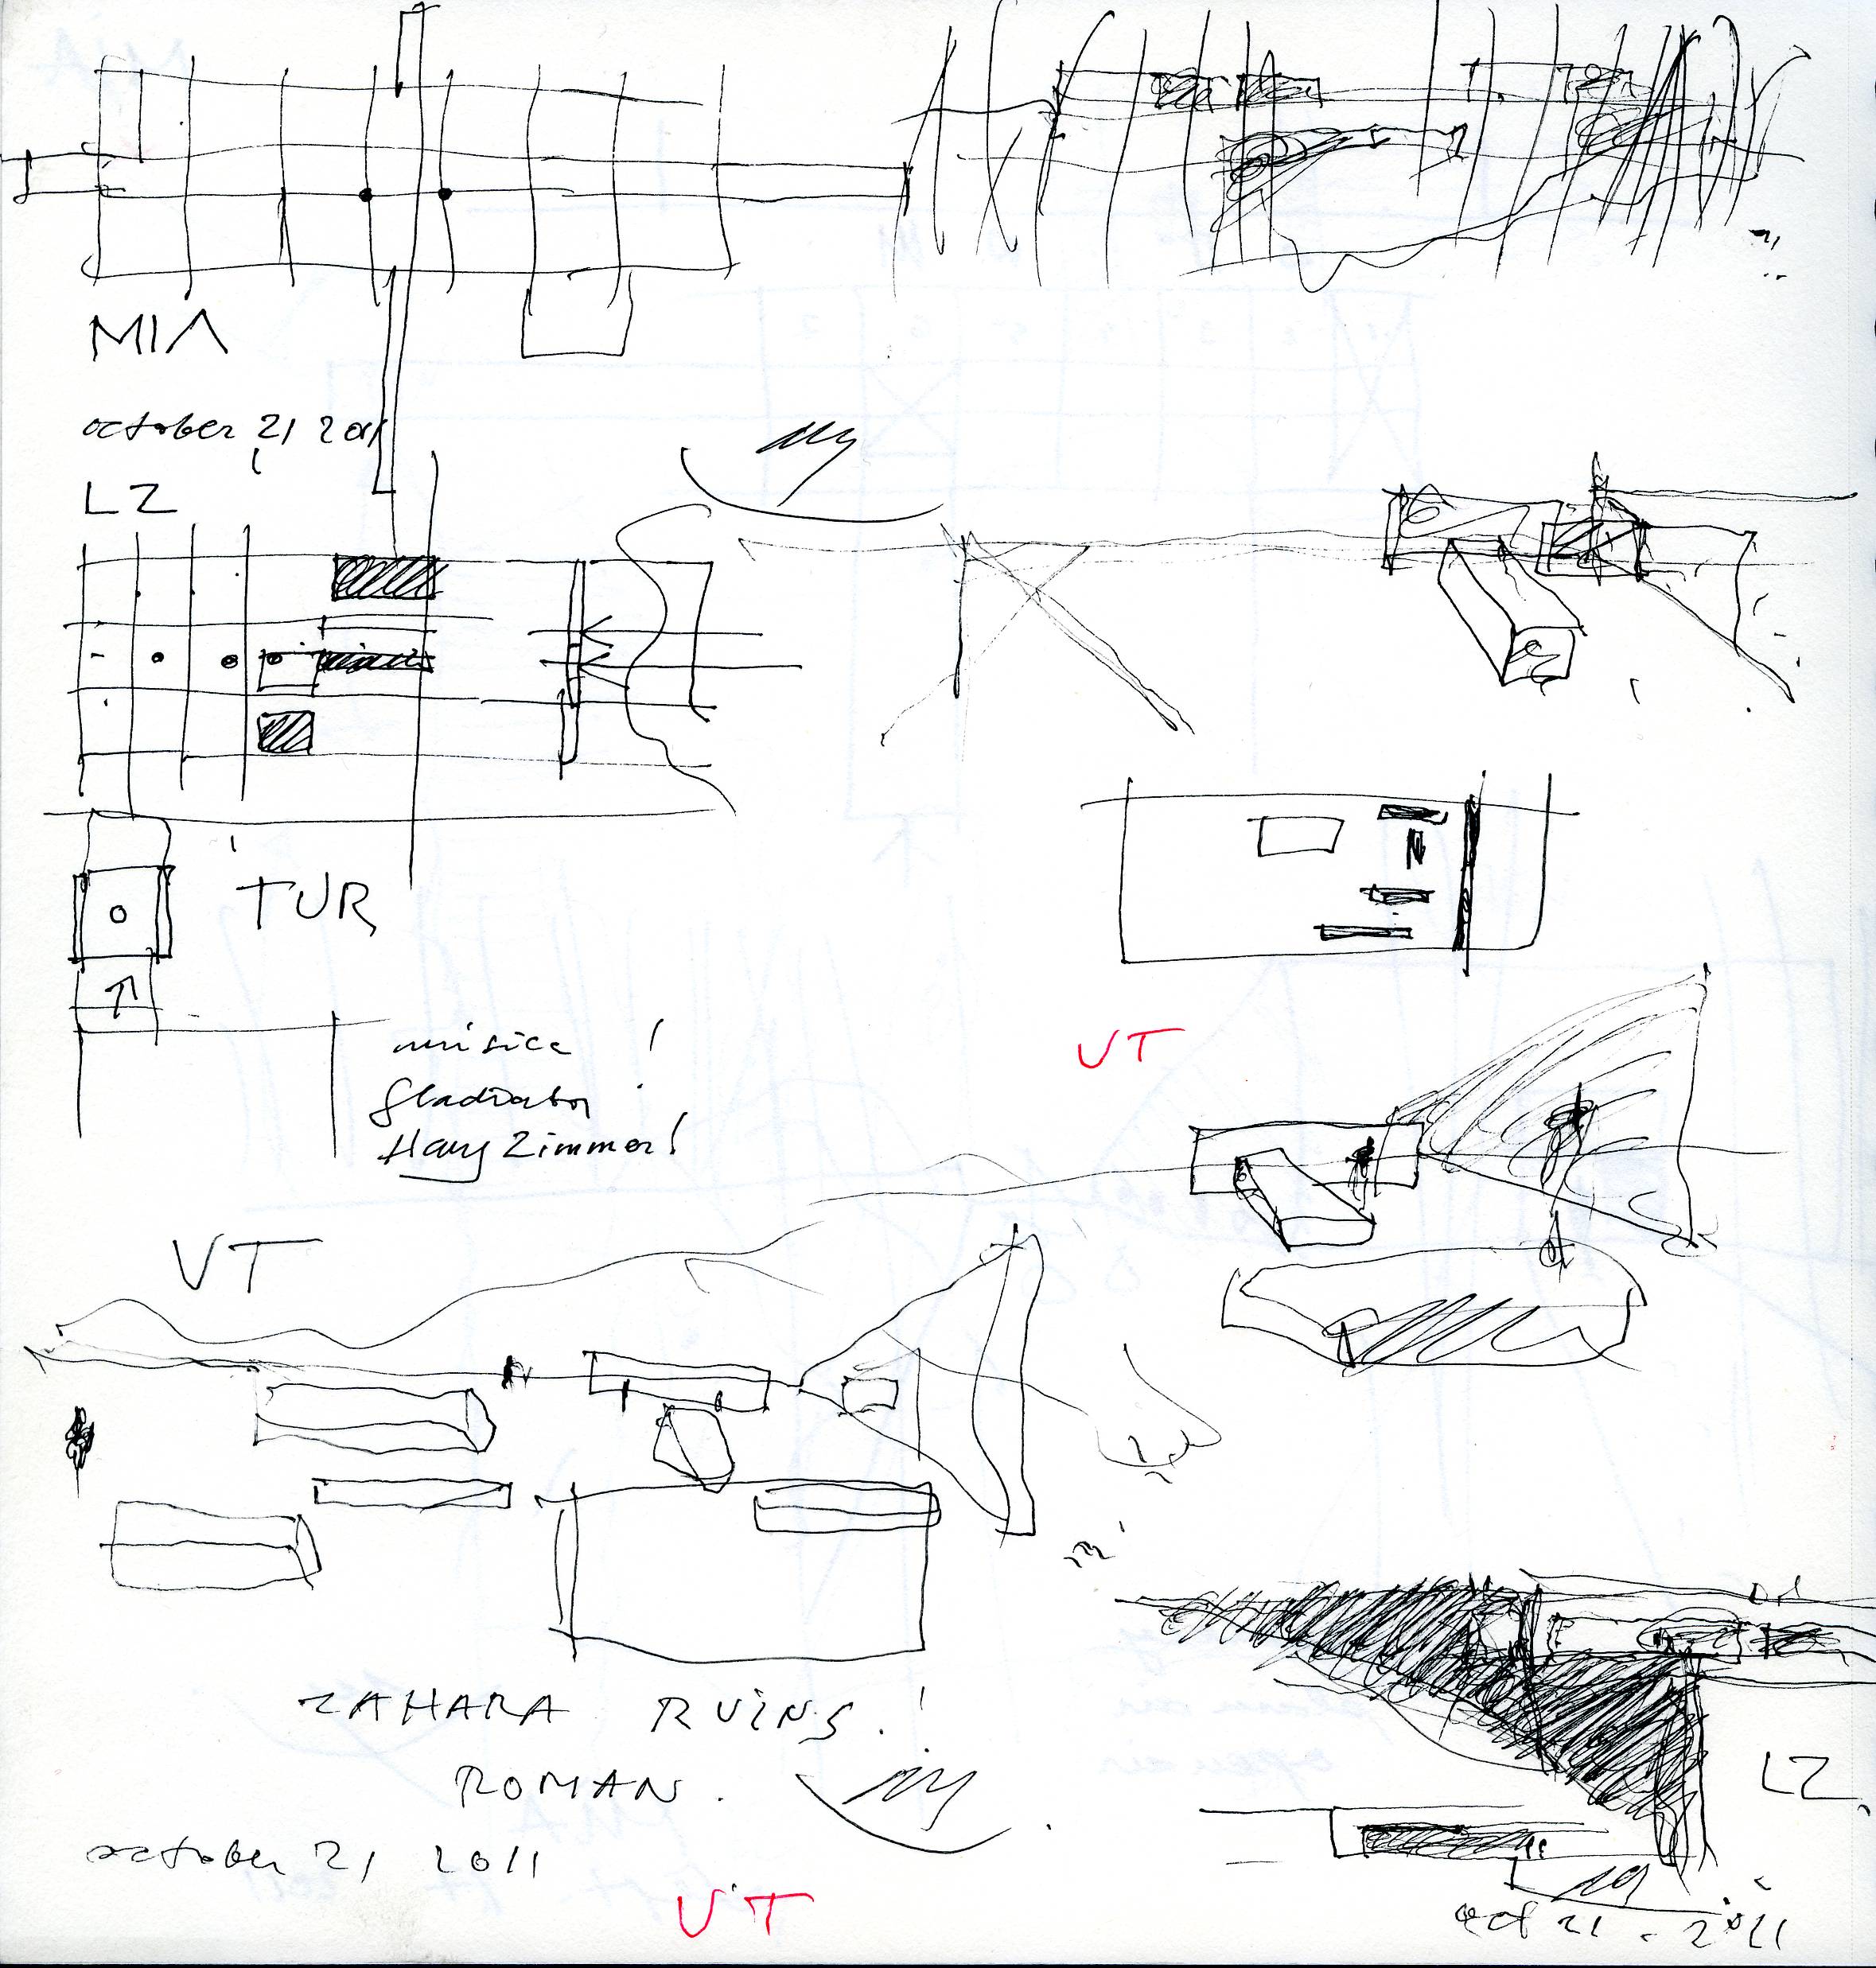 MIA
october 21 2011
LZ
TUR
música !
gladiator
Hans Zimmer!
VT
VT
ZAHARA RUINS.!
ROMAN.
october 21 2011
VT
LZ
oct 21. 2011